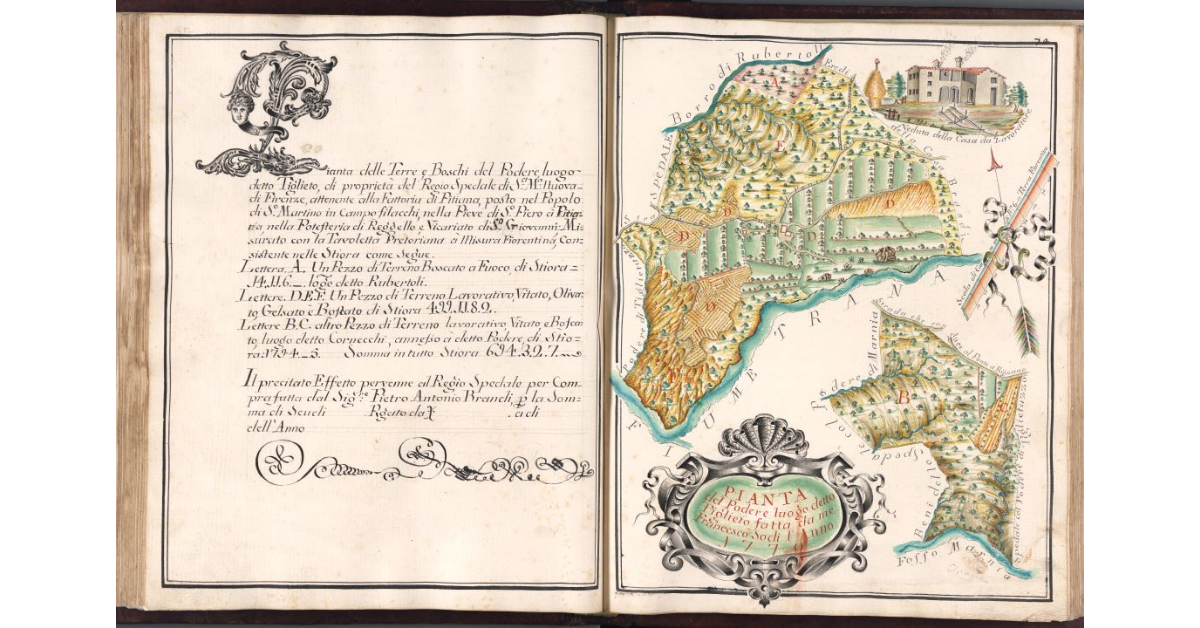 Pianta delle Terre e Boschi del Podere, luogo
detto Tiglieto, di proprietà del Regio Spedale di S.ª M.ª Nuova
di Firenze, attenente alla Fattoria di Pitiana, posto nel Popolo
di S.º Martino in Campo filacchi, nella Pieve di S.º Piero à Pitia=
na nella Potesteria di Reggello e Vicariato di S.º Giovanni. Mi=
surato con la Tavoletta Pretoriana à Misura Fiorentina, Con=
sistente nelle Stiora come Segue.
Lettera. A. Un Pezzo di Terreno Boscato a Fuoco, di Stiora=
14.11.6_. logo detto Rubertoli.
Lettere. D.E.F. Un Pezzo di Terreno Lavorativo, Vitato, Olivar=
to, Gelsato è Boscato di Stiora 499.118.9.
Lettere B.C. altro Pezzo di Terreno lavorativo, Vitato, e Bosca=
to, luogo detto Cornecchi, annesso à detto Podere, di Stio=
ra: 1794_5. Somma in tutto Stiora 694.3.9.7.
Il precitato Effetto pervenne al Regio Spedale per Com=
pra fatta dal Sig.re Pietro Antonio Brandi, p la Som=
ma di Scudi Rgato da X a di
dell'Anno
Borro di Rubertoli
Eredi
della C
Veduta della Casa da Lavoratore
SPEDALE
A
E
D
D
D
D
F
Podere di Tiglieto
FIUMETRANA
Strada che và
Luca al Ponte à Rignano
Podere di Marnia
B
C
Beni dello Spedale col
Spedale col Podere di Tiglietuzzo
Fosso Marnia
PIANTA
del Podere luogo detto
Tiglieto fatta da me
Francesco Sodi l'Anno
177